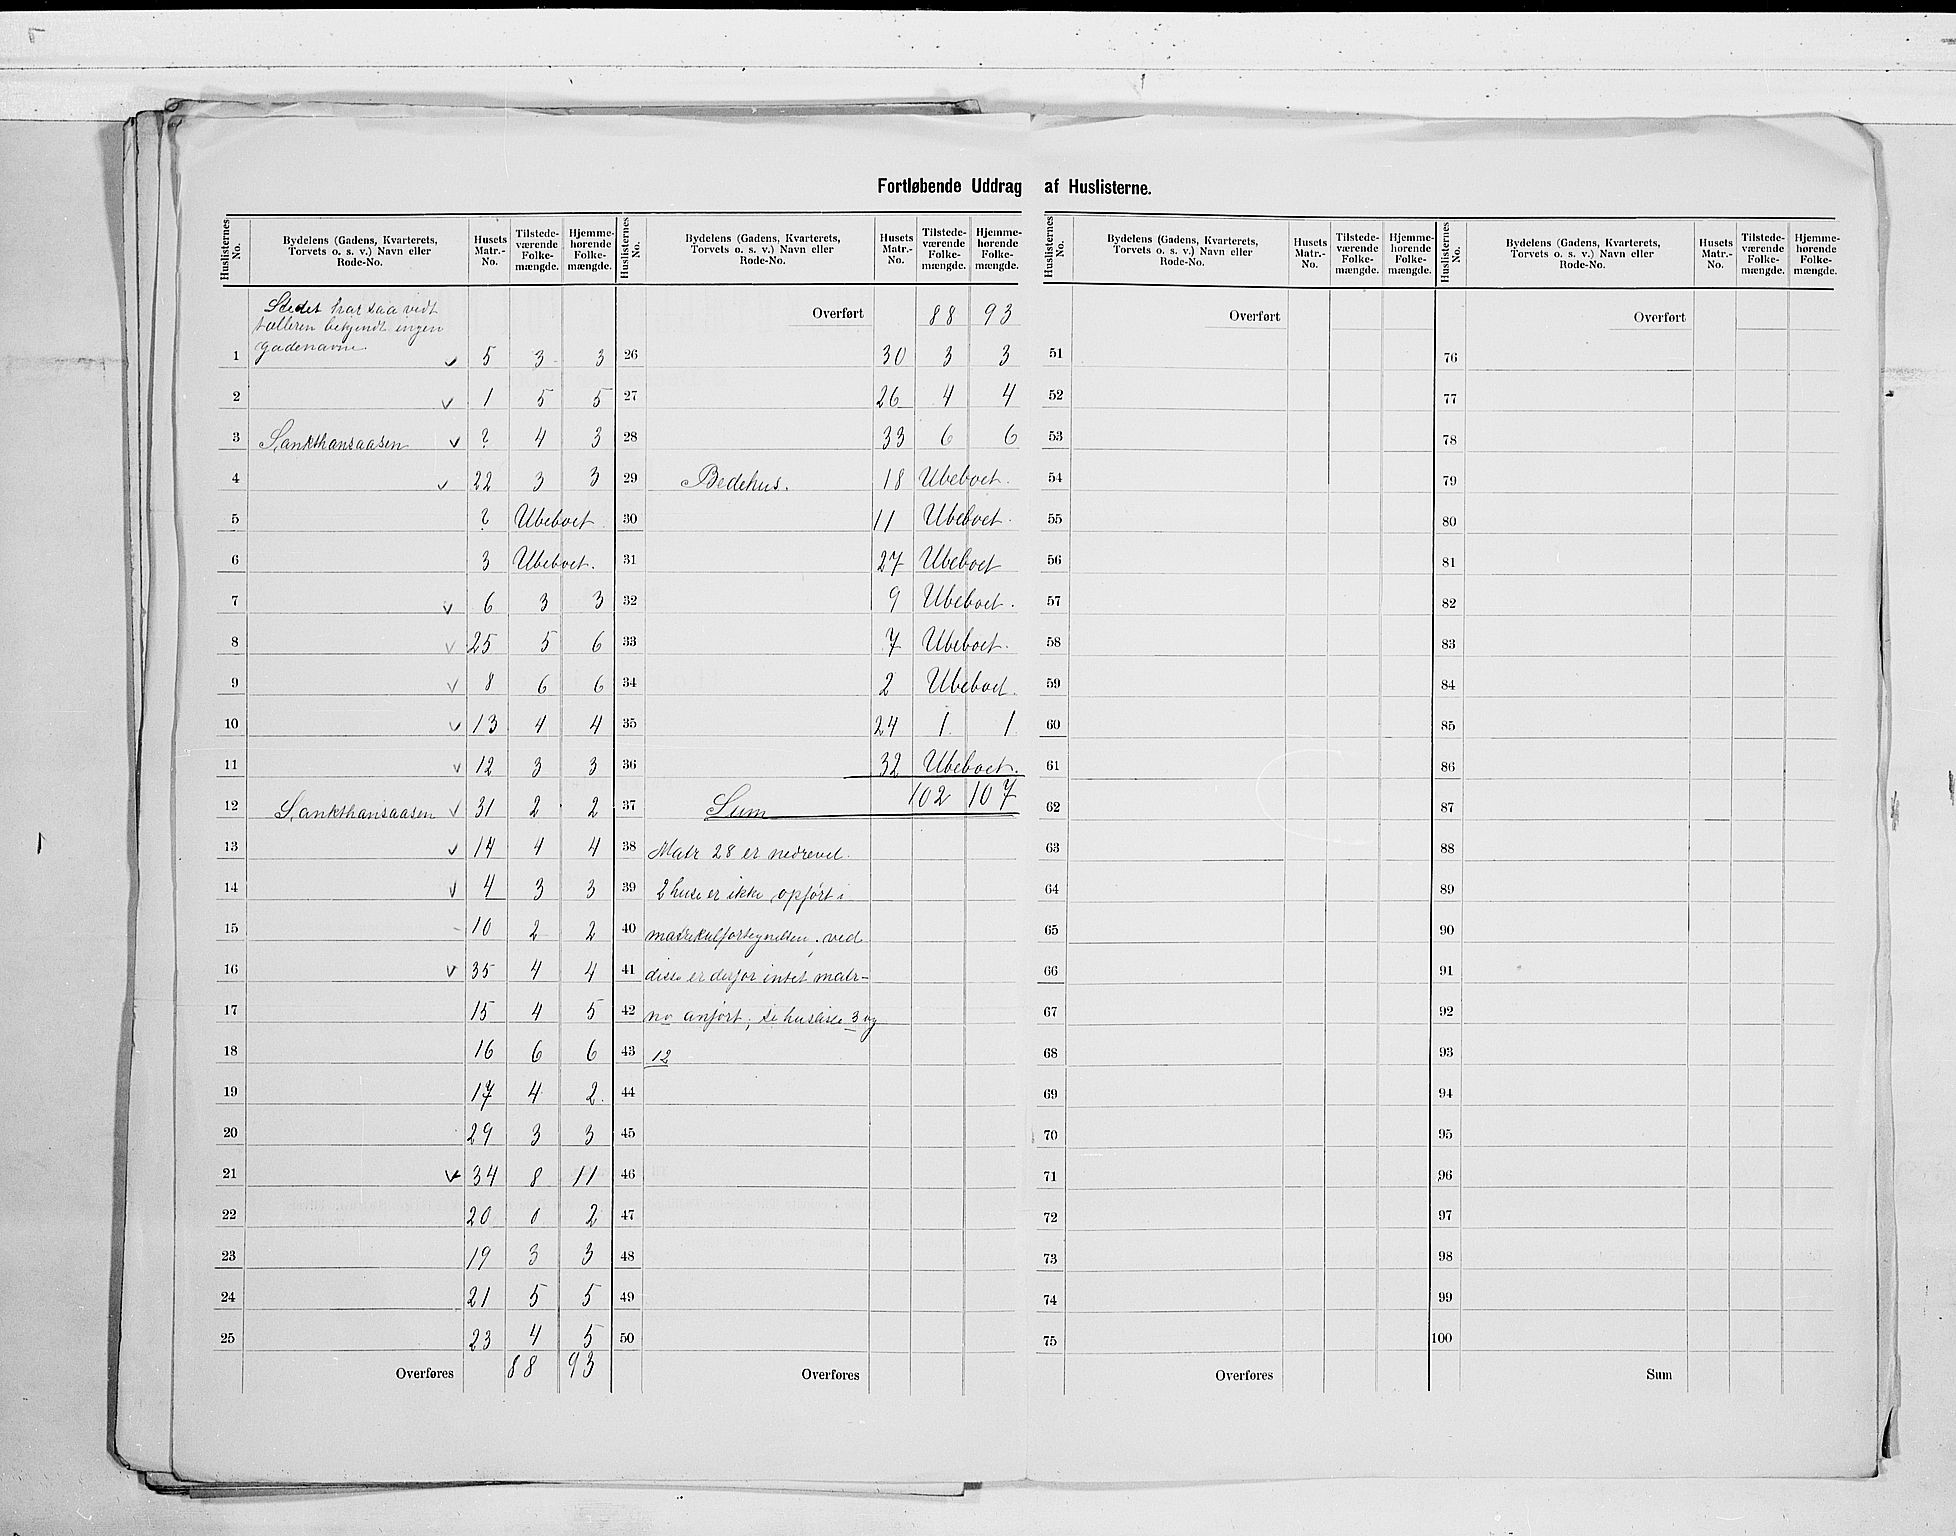 Fortløbende Uddrag af Huslisterne.
Huslisternes No. Bydelens (Gadens, Kvarterets, Torvets o. s. v.) Navn eller Rode-No. Husets Matr.-No. Tilstedeværende Folkemængde. Hjemmehørende Folkemængde.
Stedet har saa vidt
tælleren bekjendt ingen
gadenavne
1 v 5 3 3
2 v 1 5 5
3 Sankthansaasen v ? 4 3
4 v 22 3 3
5 ? Ubeboet.
6 3 Ubeboet.
7 v 6 3 3
8 v 25 5 6
9 v 8 6 6
10 v 13 4 4
11 v 12 3 3
12 Sankthansaasen v 31 2 2
13 v 14 4 4
14 v 4 3 3
15 10 2 2
16 v 35 4 4
17 15 4 5
18 16 6 6
19 17 4 2.
20 29 3 3
21 v 34 8 11
22 20 0 2
23 19 3 3
24 21 5 5
25 23 4 5
Overføres 88 93
Huslisternes No. Bydelens (Gadens, Kvarterets, Torvets o. s. v.) Navn eller Rode-No. Husets Matr.-No. Tilstedeværende Folkemængde. Hjemmehørende Folkemængde.
Overført 88 93
26 30 3 3
27 26 4 4
28 33 6 6
29 Bedehus. 18 Ubeboet.
30 11 Ubeboet.
31 27 Ubeboet
32 9 Ubeboet.
33 7 Ubeboet.
34 2 Ubeboet.
35 24 1 1
36 32 Ubeboet.
37 Sum 102 107
38 Matr 28 er nedrevet.
39 2 huse er ikke opført i
40 matrikulfortegnelsen, ved
41 disse er derfor intet matr-
42 no anført; se husliste 3 og
43 12
44
45
46
47
48
49
50
Overføres
Huslisternes No. Bydelens (Gadens, Kvarterets, Torvets o. s. v.) Navn eller Rode-No. Husets Matr.-No. Tilstedeværende Folkemængde. Hjemmehørende Folkemængde.
Overført
51
52
53
54
55
56
57
58
59
60
61
62
63
64
65
66
67
68
69
70
71
72
73
74
75
Overføres
Huslisternes No. Bydelens (Gadens, Kvarterets, Torvets o. s. v.) Navn eller Rode-No. Husets Matr.-No. Tilstedeværende Folkemængde. Hjemmehørende Folkemængde.
Overført
76
77
78
79
80
81
82
83
84
85
86
87
88
89
90
91
92
93
94
95
96
97
98
99
100
Sum